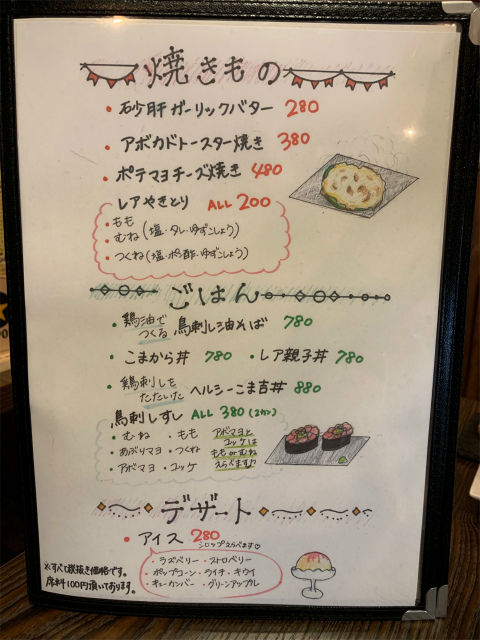 焼きもの
・砂肝ガーリックバター 280
・アボカドトースター焼き 380
・ポテマヨチーズ焼き 480
レアやきとり ALL 200
・もも
・むね(塩・タレ・ゆずこしょう)
・つくね(塩・ポン酢・ゆずこしょう)
ごはん
・鶏油でつくる鳥刺し油そば 780
・こまから丼 780 ・レア親子丼 780
・鶏刺しをたたいたヘルシーこま吉丼 880
鳥刺しずし ALL 380(2カン)
・むね ・もも
・あぶりマヨ ・つくね
・アボマヨ ・ユッケ
アボマヨと
ユッケは
ももorむね
えらべます♪
デザート
・アイス 280
シロップえらべます♡
・ラズベリー ・ストロベリー
・ポップコーン ・ライチ ・キウイ
・キューカンバー ・グリーンアップル
※すべて税抜き価格です。
席料100円頂いております。